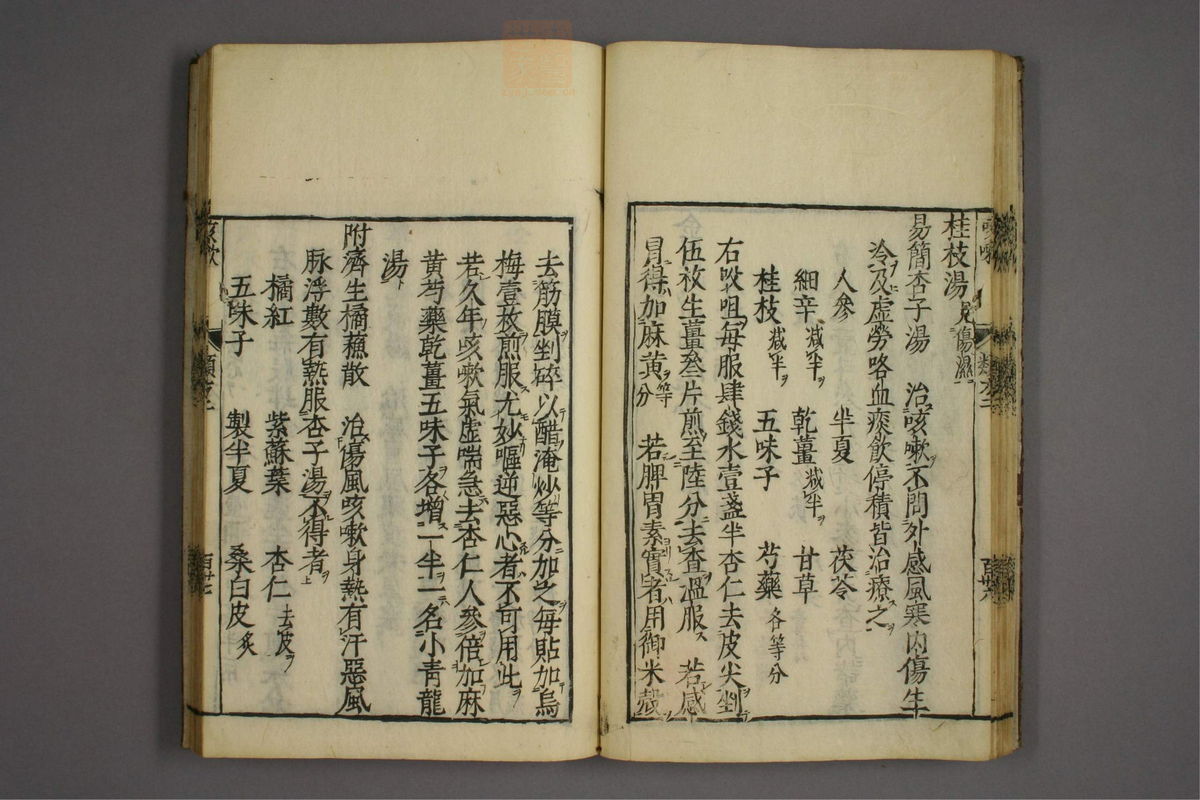 桂枝湯見傷濕
易簡杏子湯　治咳嗽不問外感風寒内傷生
冷及虛勞咯血痰飲停積皆治療之
人參　半夏　茯苓
細辛減半　乾薑減半　甘草
桂枝減半　五味子　芍藥各等分
右㕮咀每服肆錢水壹盞半杏仁去皮尖剉
伍枚生薑叁片煎至陸分去査溫服　若感
冒得加麻黄等分　若脾胃素實者用御米殻
去筋膜剉碎以醋淹炒等分加之每貼加烏
梅壹枚煎服尤妙嘔逆惡心者不可用此
若久年咳嗽氣虛喘急去杏仁人參倍加麻
黄芍藥乾薑五味子各增一半一名小青龍
湯
附濟生橘蘓散　治傷風咳嗽身熱有汗惡風
脉浮數有熱服杏子湯不得者
橘紅　紫蘇葉　杏仁去皮
五味子　製半夏　桑白皮炙
咳嗽　類方二　百廿七